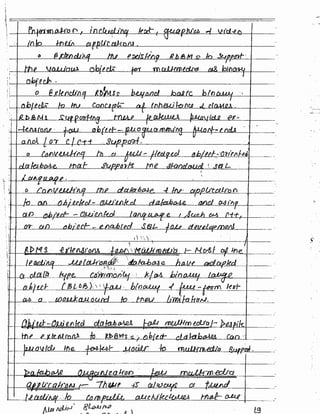 information, including text, graphics & video
into into applications.
o Extending the existing RDBMS to support
the various objects for multimedia as binary
objects.
o Extending RDBMSs beyond basic binary
objects to the concepts of inheritance & classes.
RDBMS supporting these features provide ex-
-tensions for object-programming front-ends
and / or C/C++ support.
o Converting to a full-fledged object-oriented
database that supports the standard SQL
Language.
o Converting the database & the application
to an objected-oriented database and using
an object-oriented language, such as C++,
or an object-enabled SQL for development
RDBMS extensions for Multimedia :- Most of the
leading relational database have adapted
a data type commonly k/as binary large
object (BLOB) for binary & free-form text
as a workaround to their limitations.
Object-Oriented databases for multimedia :- Despite
the extensions to RDBMSs, object databases can
provide the fastest route to multimedia support.
Database Organization for multimedia
applications :- There is always a trend
leading to complex architectures that are
19